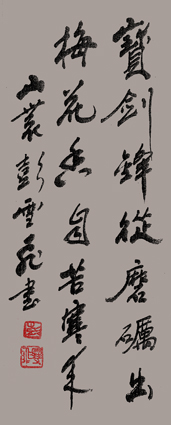 寶劍鋒從磨礪出
梅花香自苦寒來
山叢彭雪飛書